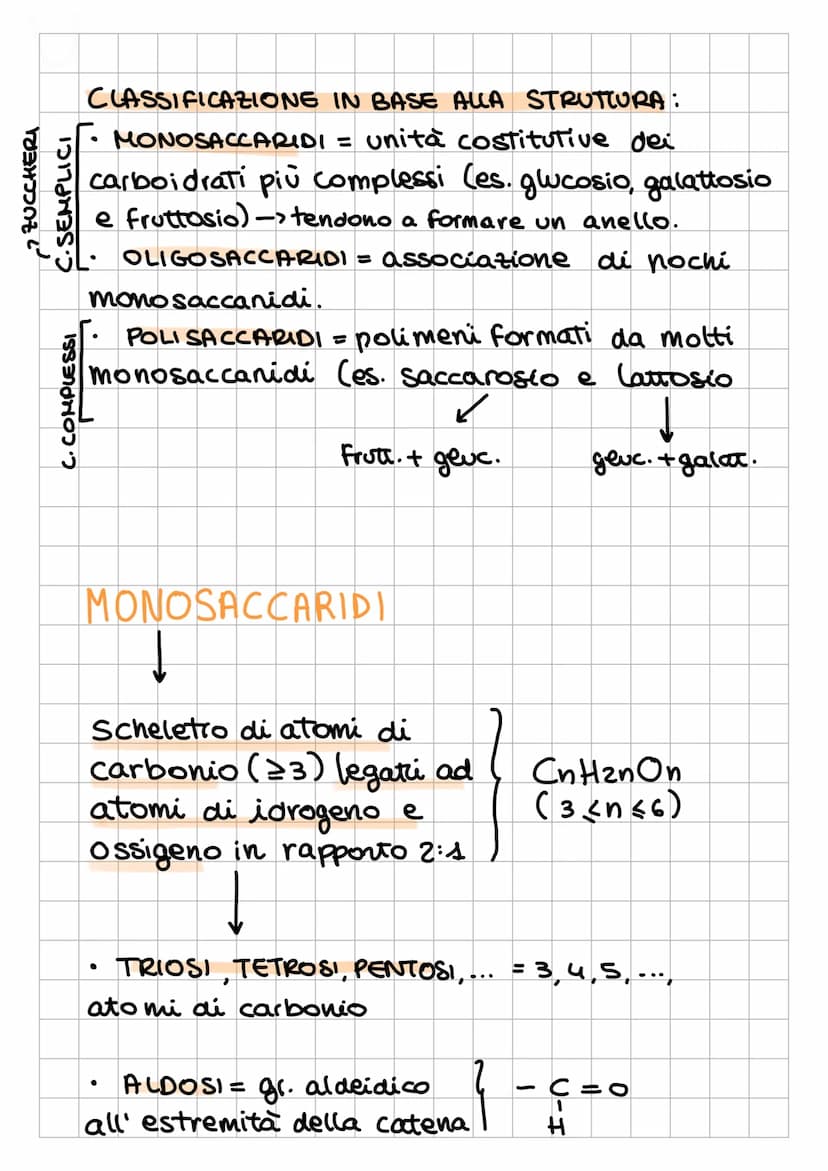 CLASSIFICAZIONE IN BASE ALLA STRUTTURA:
→ ZUCCHERI
C. SEMPLICI
· MONOSACCARIDI = unità costitutive dei
carboidrati più complessi (es. glucosio, galattosio
e fruttosio) -> tendono a formare un anello.
· OLIGOSACCARIDI = associazione di pochi
monosaccaridi.
C. COMPLESSI
· POLISACCARIDI = polimeri formati da molti
monosaccaridi (es. saccarosio e lattosio
↙ ↓
Frutt. + gluc. gluc. + galat.
MONOSACCARIDI
↓
Scheletro di atomi di
carbonio (≥3) legati ad } CnH2nOn
atomi di idrogeno e (3≤n≤6)
ossigeno in rapporto 2:1
↓
· TRIOSI, TETROSI, PENTOSI, ... = 3, 4, 5, ...,
atomi di carbonio
· ALDOSI = gr. aldeidico } - C = O
all'estremità della catena H